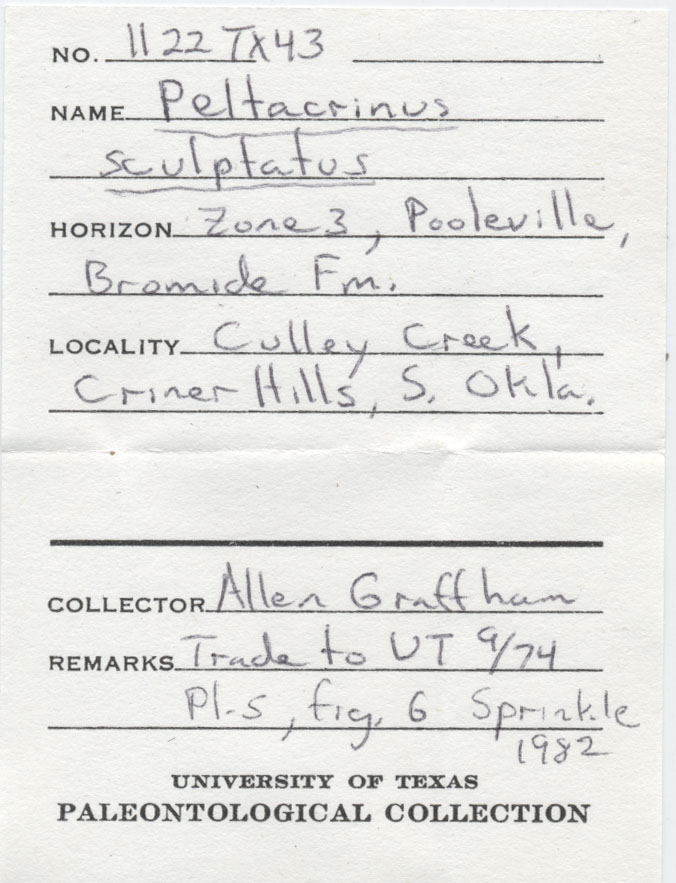 NO. 1122TX43
NAME Peltacrinus
sculptatus
HORIZON Zone 3, Pooleville,
Bromide Fm.
LOCALITY Culley Creek,
Criner Hills, S. Okla.
COLLECTOR Allen Graffham
REMARKS Trade to UT 9/74
Pl. 5, fig. 6 Sprinkle
1982
UNIVERSITY OF TEXAS
PALEONTOLOGICAL COLLECTION